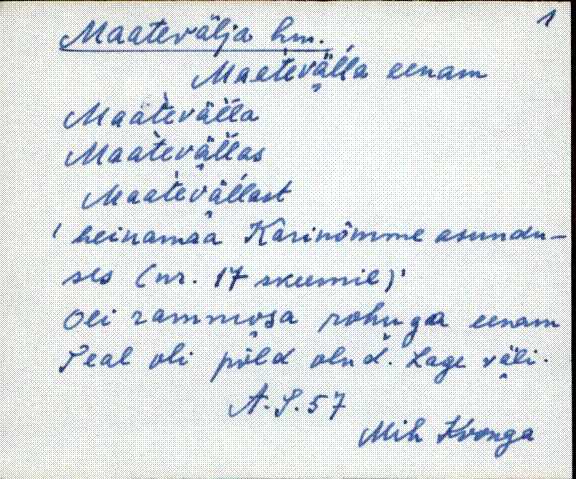 1
Maatevälja hm.
Maatèvälla eenam
Maatèvälla
Maatèvällas
Maatèvällast
' heinamaa Karinõmme asundu-
ses (nr. 17 skeemil)'
Oli rammosa rohuga eenam
Seal oli põld olnd. Lage väli.
A. S. 57
Mih Kronga